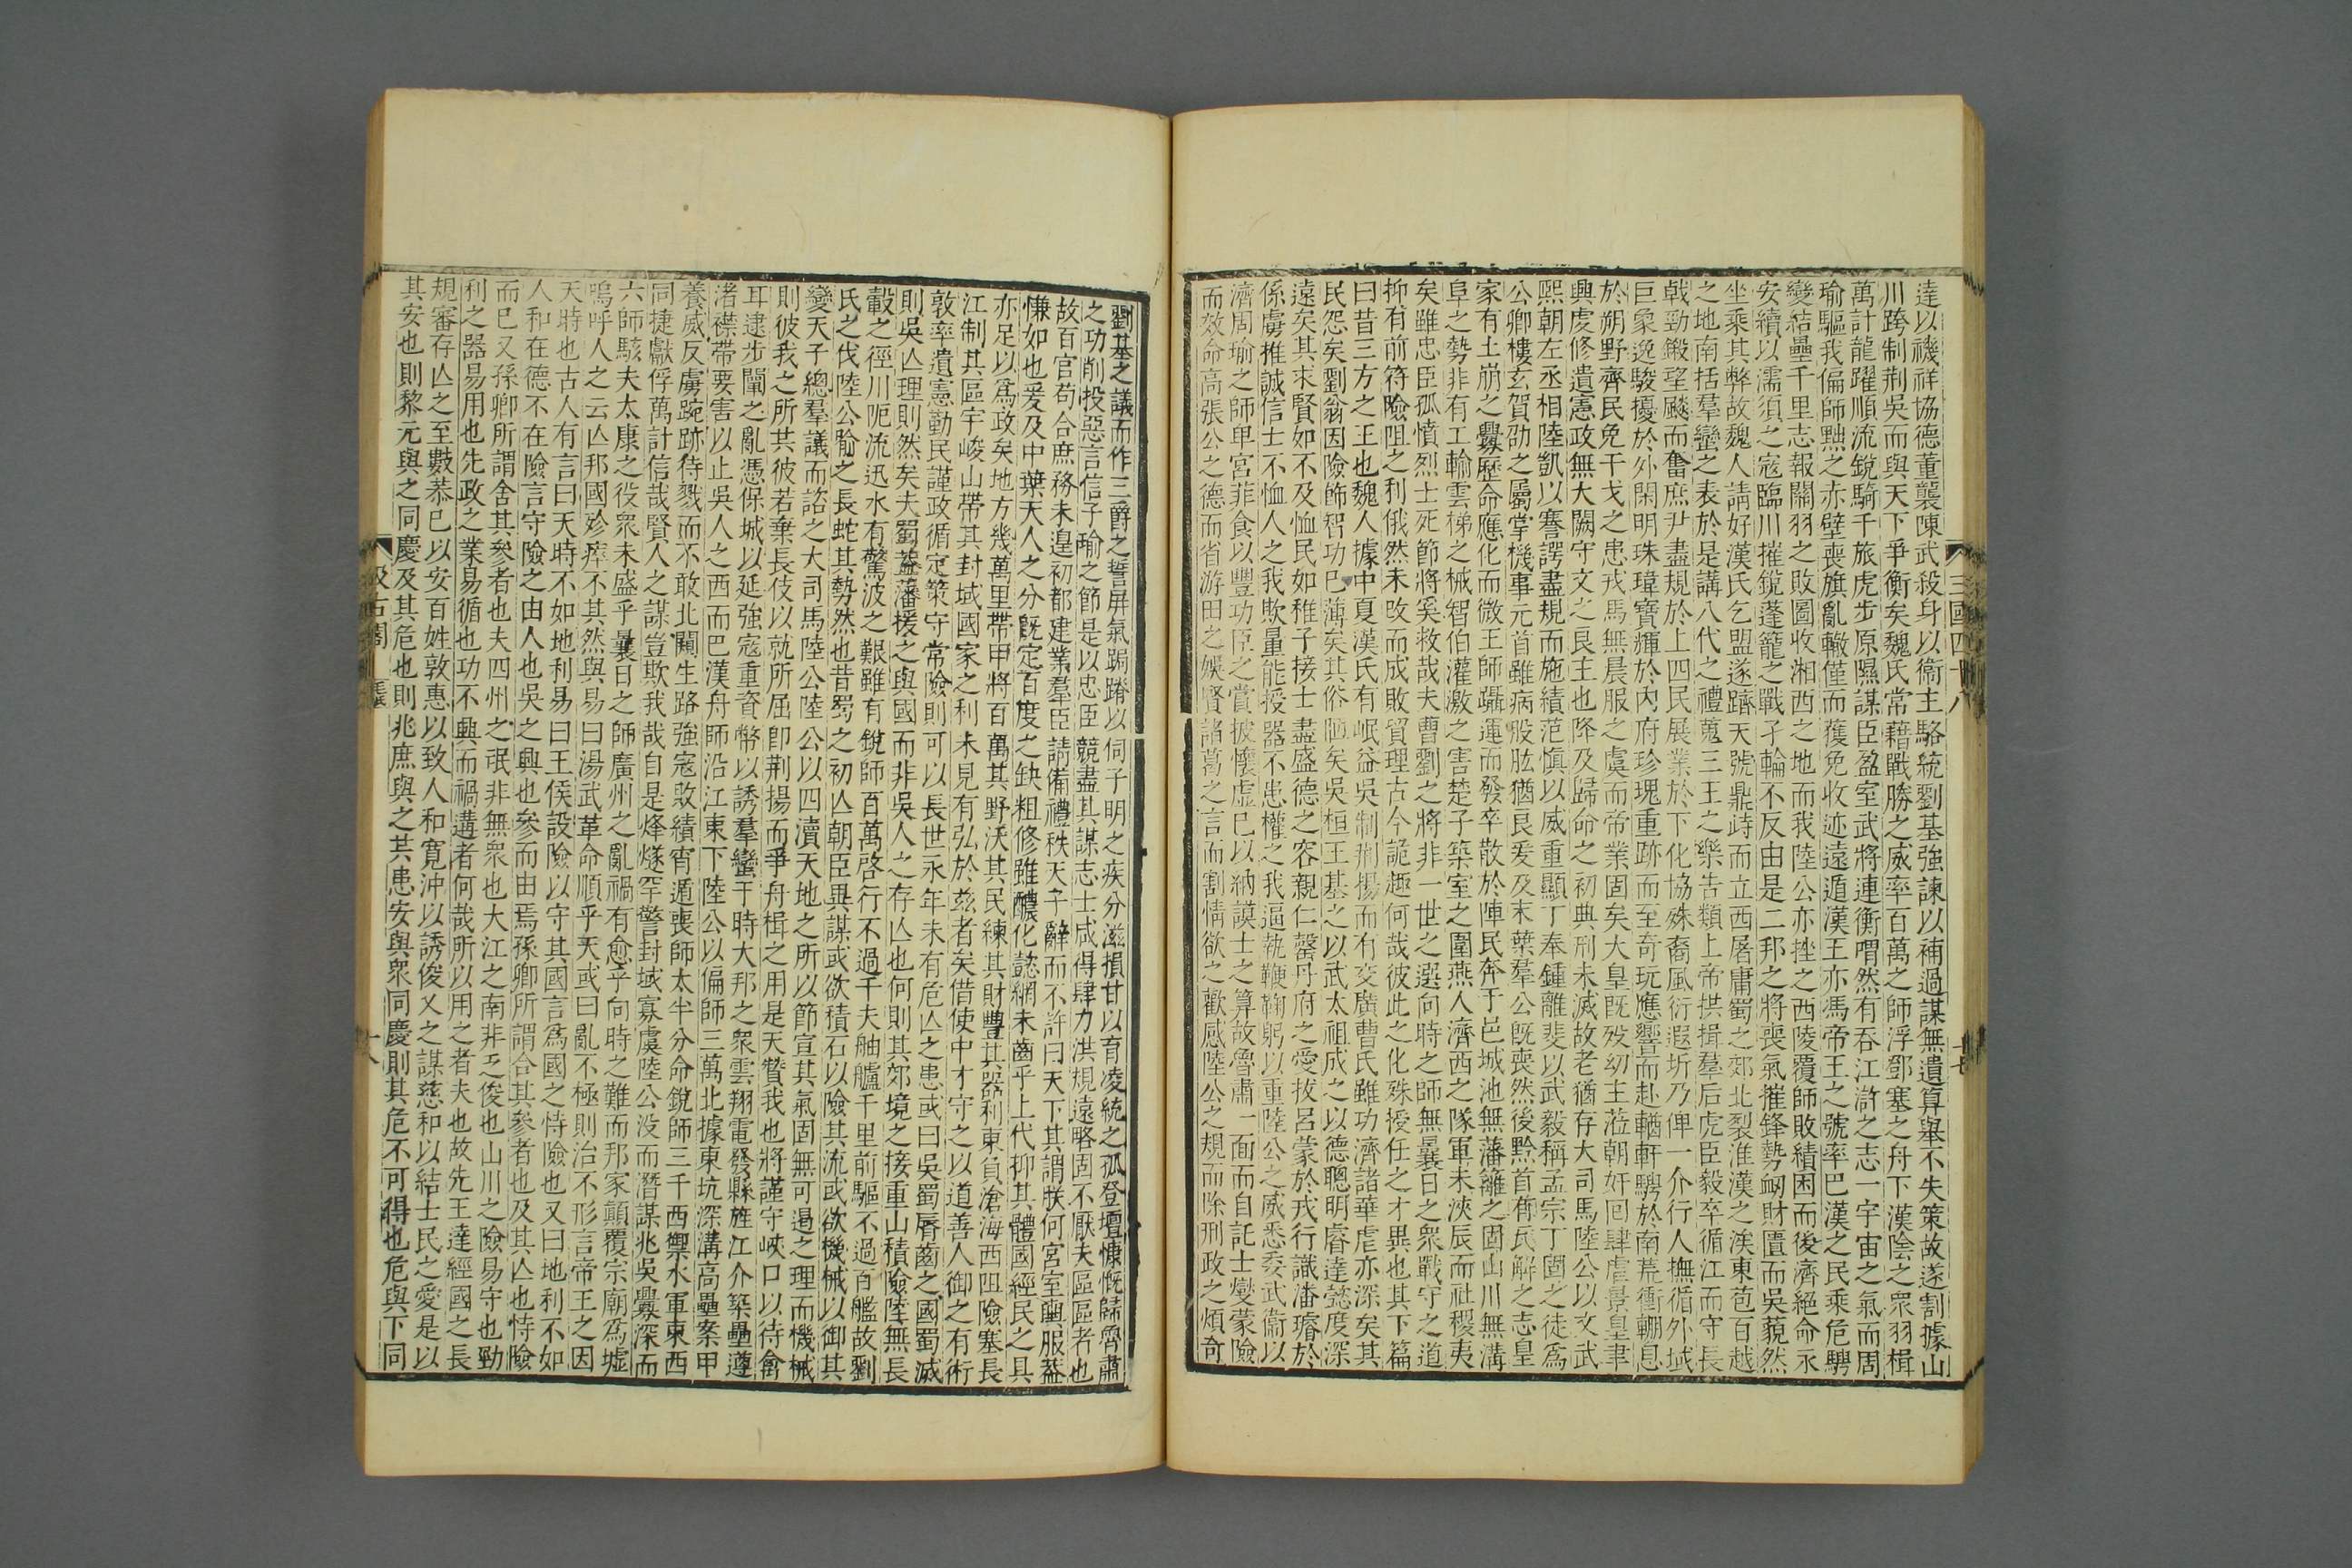 三國四十八
達以禨祥協德董襲陳武殺身以衞主駱統劉基強諫以補過謀無遺算舉不失策故遂割據山
川跨制荆吳而與天下爭衡矣魏氏常藉戰勝之威率百萬之師浮鄧塞之舟下漢陰之眾羽楫
萬計龍躍順流銳騎千旅虎步原隰謀臣盈室武將連衡喟然有吞江滸之志一宇宙之氣而周
瑜驅我偏師黜之赤壁喪旗亂轍僅而獲免收迹遠遁漢王亦馮帝王之號率巴漢之民乘危騁
變結壘千里志報關羽之敗圖收湘西之地而我陸公亦挫之西陵覆師敗績困而後濟絕命永
安續以濡須之寇臨川摧銳蓬籠之戰孑輪不反由是二邦之將喪氣摧鋒勢衂財匱而吳藐然
坐乘其弊故魏人請好漢氏乞盟遂躋天號鼎跱而立西屠庸蜀之郊北裂淮漢之涘東苞百越
之地南括羣蠻之表於是講八代之禮蒐三王之樂告類上帝拱揖羣后虎臣毅卒循江而守長
戟勁鎩望飈而奮庶尹盡規於上四民展業於下化協殊裔風衍遐圻乃俾一介行人撫循外域
巨象逸駿擾於外閑明珠瑋寶輝於內府珍瑰重跡而至奇玩應響而赴輶軒騁於南荒衝輣息
於朔野齊民免干戈之患戎馬無晨服之虞而帝業固矣大皇旣歿幼主莅朝奸回肆虐景皇聿
興虔修遺憲政無大闕守文之良主也降及歸命之初典刑未滅故老猶存大司馬陸公以文武
熙朝左丞相陸凱以謇諤盡規而施績范慎以威重顯丁奉鍾離斐以武毅稱孟宗丁固之徒爲
公卿樓玄賀劭之屬掌機事元首雖病股肱猶良爰及末葉羣公旣喪然後黔首有瓦解之志皇
家有土崩之釁歷命應化而微王師躡運而發卒散於陣民奔于邑城池無藩籬之固山川無溝
阜之勢非有工輸雲梯之械智伯灌激之害楚子築室之圍燕人濟西之隊軍未浹辰而社稷夷
矣雖忠臣孤憤烈士死節將奚救哉夫曹劉之將非一世之選向時之師無曩日之衆戰守之道
抑有前符險阻之利俄然未改而成敗貿理古今詭趣何哉彼此之化殊授任之才異也其下篇
曰昔三方之王也魏人據中夏漢氏有岷益吳制荆揚而有交廣曹氏雖功濟諸華虐亦深矣其
民怨矣劉翁因險飾智功已薄矣其俗陋矣吳桓王基之以武太祖成之以德聰明睿達懿度深
遠矣其求賢如不及恤民如稚子接士盡盛德之容親仁罄丹府之愛拔呂蒙於戎行識潘璿於
係虜推誠信士不恤人之我欺量能授器不患權之我逼執鞭鞠躬以重陸公之威悉委武衞以
濟周瑜之師卑宮菲食以豐功臣之賞披懷虛己以納謨士之算故魯肅一面而自託士燮蒙險
而效命高張公之德而省游田之娛賢諸葛之言而割情欲之歡感陸公之規而除刑政之煩奇
劉基之議而作三爵之誓屏氣跼蹐以伺子明之疾分滋損甘以育凌統之孤登壇慷慨歸魯肅
之功削投惡言信子瑜之節是以忠臣競盡其謀志士咸得肆力洪規遠略固不厭夫區區者也
故百官苟合庶務未遑初都建業羣臣請備禮秩天子辭而不許曰天下其謂朕何宮室輿服蓋
慊如也爰及中葉天人之分旣定百度之缺粗修雖醲化懿綱未齒乎上代抑其體國經民之具
亦足以爲政矣地方幾萬里帶甲將百萬其野沃其民練其財豐其器利東負滄海西阻險塞長
江制其區宇峻山帶其封域國家之利未見有弘於茲者矣借使中才守之以道善人御之有術
敦率遺憲勤民謹政循定策守常險則可以長世永年未有危亾之患或曰吳蜀脣齒之國蜀滅
則吳亾理則然矣夫蜀蓋藩援之與國而非吳人之存亾也何則其郊境之接重山積險陸無長
轂之徑川阨流迅水有驚波之艱雖有銳師百萬啓行不過千夫舳艫千里前驅不過百艦故劉
氏之伐陸公喻之長蛇其勢然也昔蜀之初亾朝臣異謀或欲積石以險其流或欲機械以御其
變天子總羣議而諮之大司馬陸公陸公以四瀆天地之所以節宣其氣固無可遏之理而機械
則彼我之所共彼若棄長伎以就所屈卽荆揚而爭舟楫之用是天贊我也將謹守峽口以待禽
耳逮步闡之亂憑保城以延強寇重資幣以誘羣蠻于時大邦之衆雲翔電發縣旌江介築壘遵
渚襟帶要害以止吳人之西而巴漢舟師沿江東下陸公以偏師三萬北據東坑深溝高壘案甲
養威反虜踠跡待戮而不敢北闚生路強寇敗績宵遁喪師太半分命銳師三千西禦水軍東西
同捷獻俘萬計信哉賢人之謀豈欺我哉自是烽燧罕警封域寡虞陸公沒而潛謀兆吳釁深而
六師駭夫太康之役衆未盛乎曩日之師廣州之亂禍有愈乎向時之難而邦家顛覆宗廟爲墟
嗚呼人之云亾邦國殄瘁不其然與易曰湯武革命順乎天或曰亂不極則治不形言帝王之因
天時也古人有言曰天時不如地利易曰王侯設險以守其國言爲國之恃險也又曰地利不如
人和在德不在險言守險之由人也吳之興也參而由焉孫卿所謂合其參者也及其亾也恃險
而已又孫卿所謂舍其參者也夫四州之氓非無衆也大江之南非乏俊也山川之險易守也勁
利之器易用也先政之業易循也功不興而禍遘者何哉所以用之者夫也故先王達經國之長
規審存亾之至數恭己以安百姓敦惠以致人和寬沖以誘俊乂之謀慈和以結士民之愛是以
其安也則黎元與之同慶及其危也則兆庶與之共患安與衆同慶則其危不可得也危與下同
汲古閣
十八